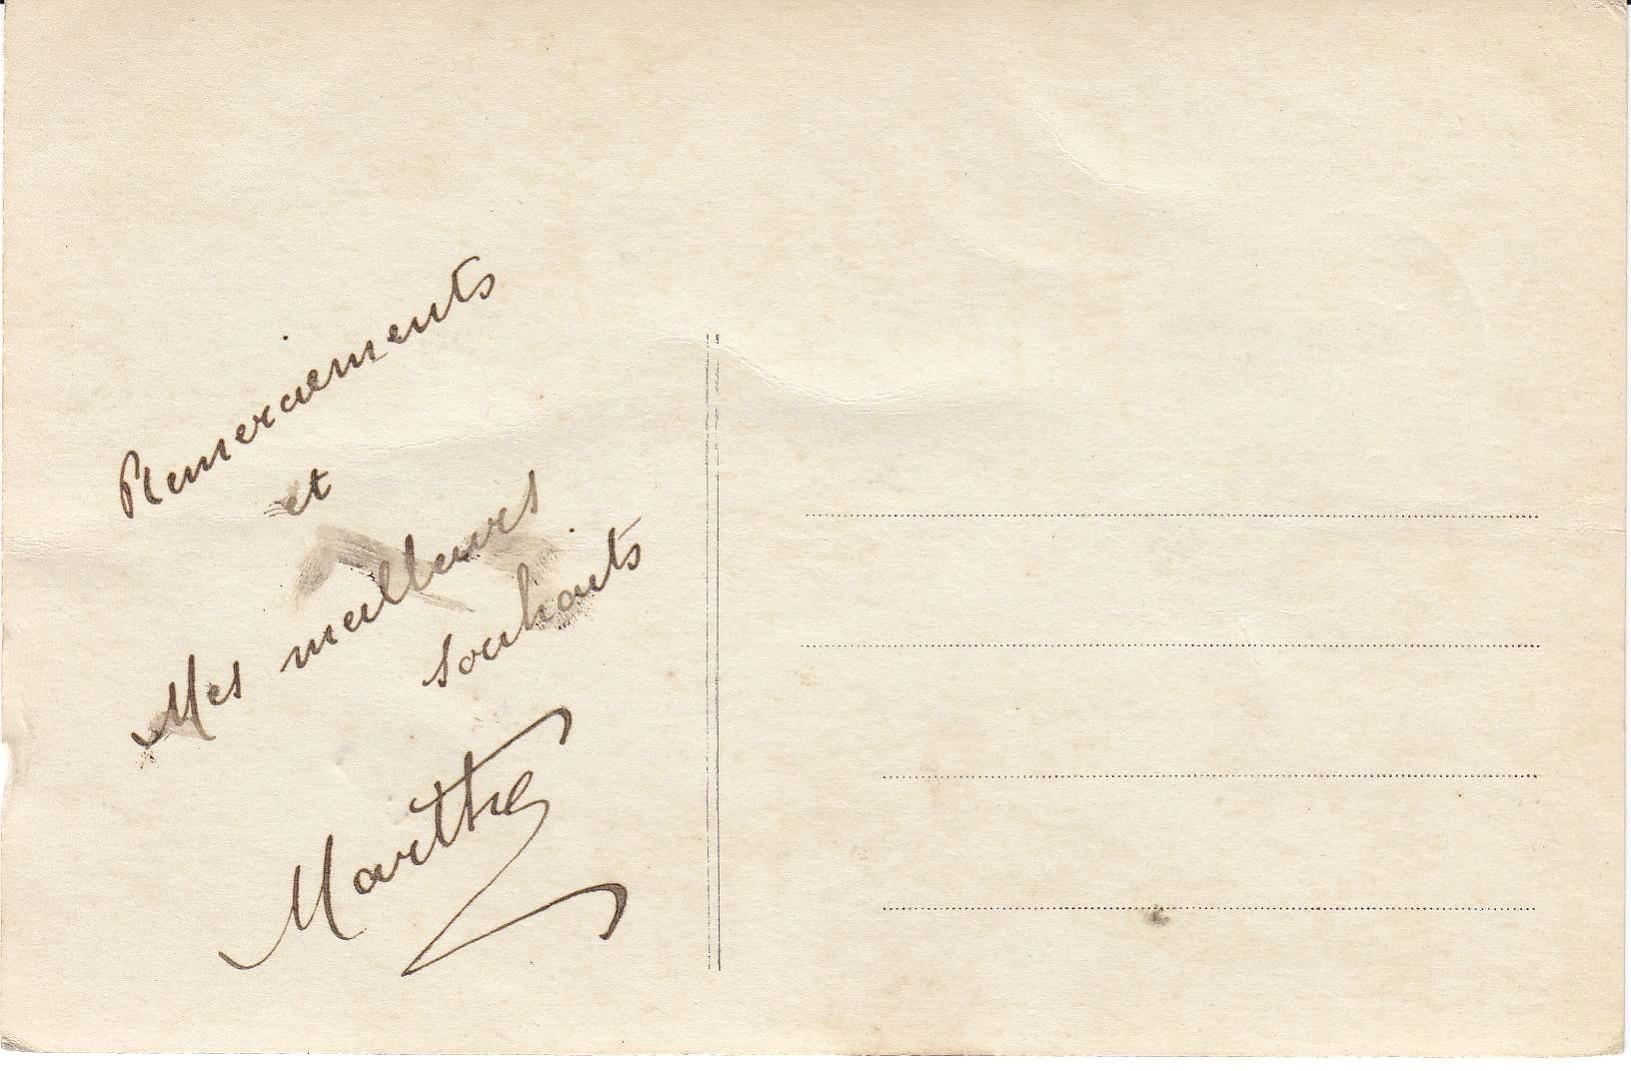 Remerciements
et
Mes meilleurs
souhaits
Marthe